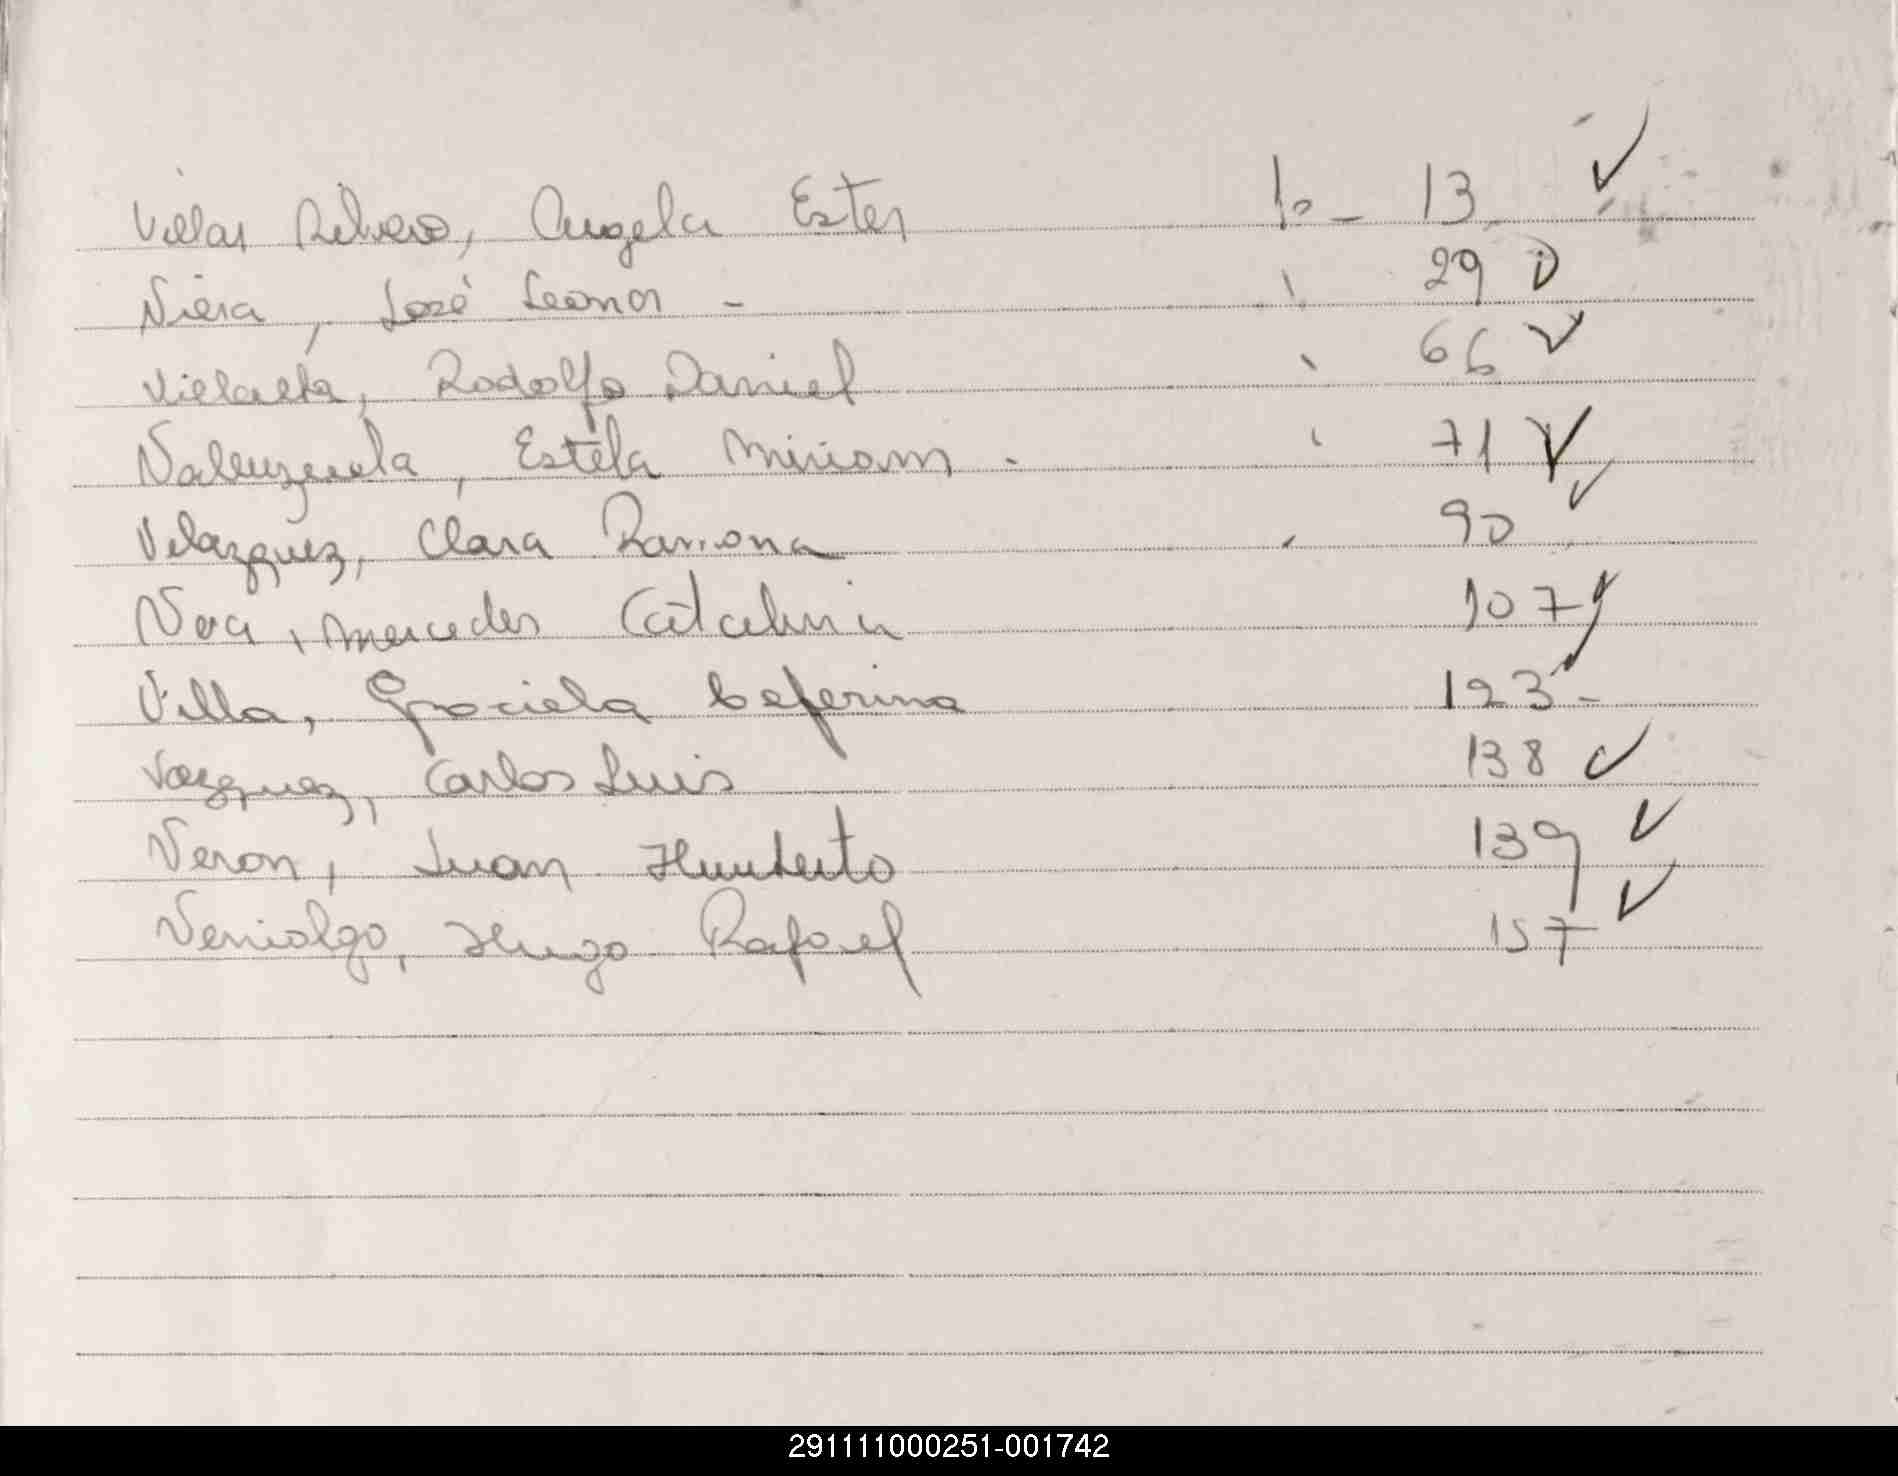 Villar Rivero, Angela Ester 1o - 13 ✓
Viera, José Leonor - 29 ✓
Villalta, Rodolfo Daniel 66 ✓
Valenzuela, Estela Miriam - 71 ✓
Velazquez, Clara Ramona 90 ✓
Vera, Mercedes Catalina 107 ✓
Villa, Graciela Ceferina 123 - ✓
Vazquez, Carlos Luis 138 ✓
Veron, Juan Humberto 139 ✓
Verialgo, Hugo Rafael 157 ✓
291111000251-001742